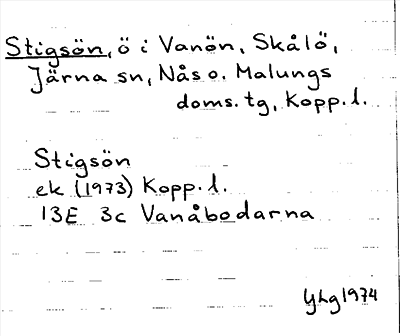 Stigsön, ö i Vanön, Skålö,
Järna sn, Nås o. Malungs
doms. tg, Kopp. l.
Stigsön
ek (1973) Kopp. l.
13E 3c Vanåbodarna
YLg 1974